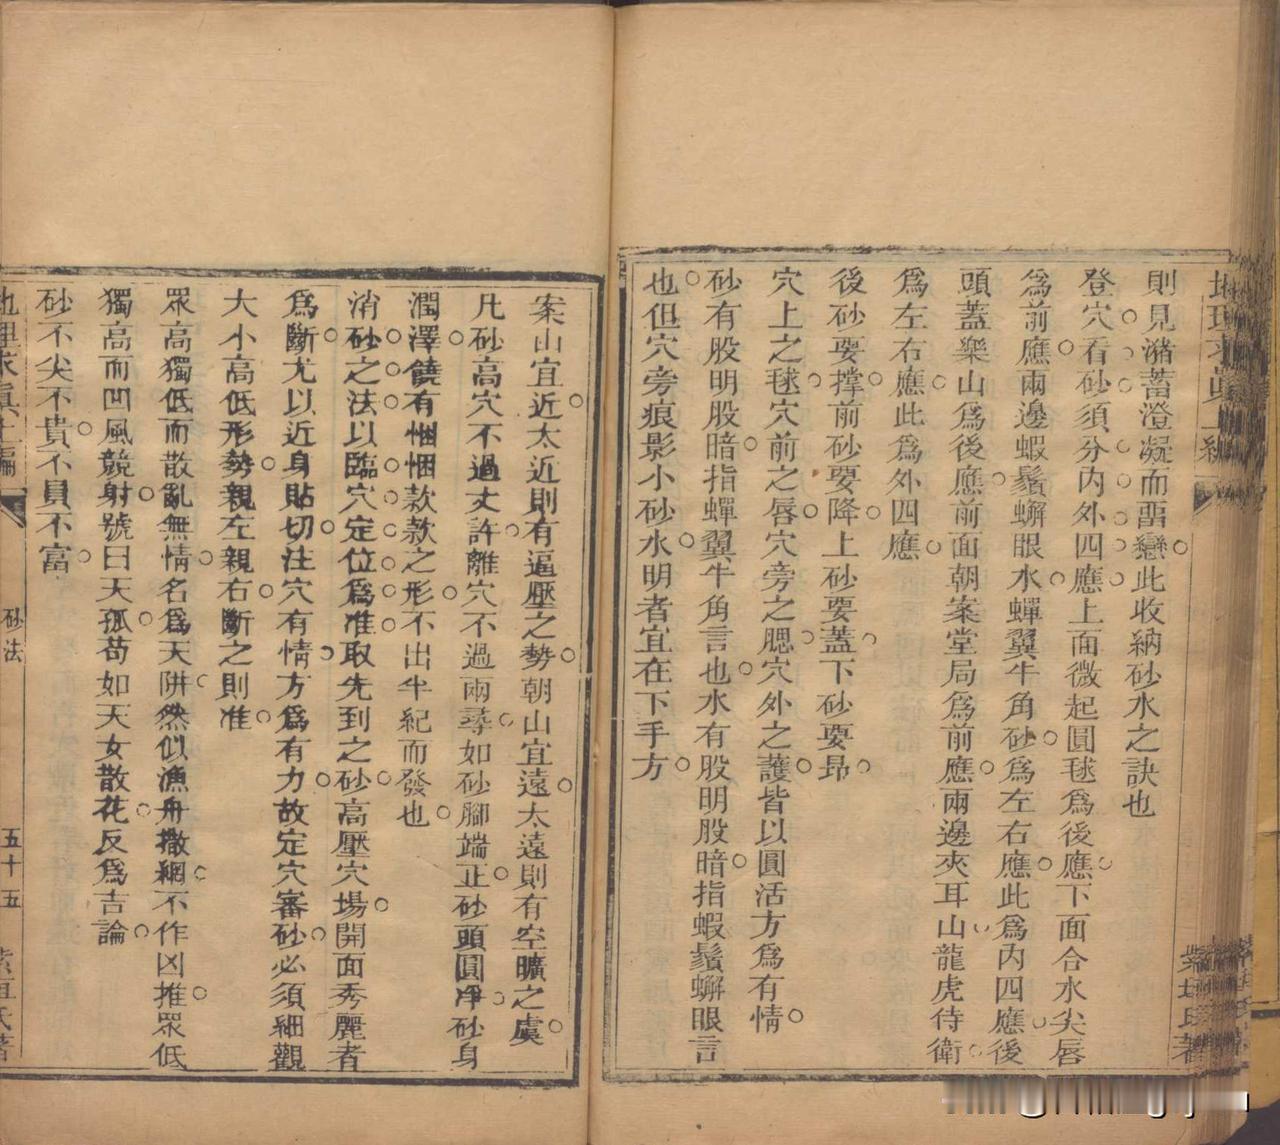 則見瀦蓄澄凝而畱戀此收納砂水之訣也
登穴看砂須分內外四應上面微起圓毬爲後應下面合水尖唇
爲前應兩邊蝦鬚蠏眼水蟬翼牛角砂爲左右應此爲內四應後
頭蓋樂山爲後應前面朝案堂局爲前應兩邊夾耳山龍虎侍衛
爲左右應此爲外四應
後砂要撑前砂要降上砂要蓋下砂要昻
穴上之毬穴前之唇穴旁之腮穴外之護皆以圓活方爲有情
砂有股明股暗指蟬翼牛角言也水有股明股暗指蝦鬚蠏眼言
也但穴旁痕影小砂水明者宜在下手方
案山宜近太近則有逼壓之勢朝山宜遠太遠則有空曠之虞
凡砂高穴不過丈許離穴不過兩尋如砂腳端正砂頭圓淨砂身
潤澤饒有悃悃款款之形不出半紀而發也
消砂之法以臨穴定位爲准取先到之砂高壓穴場開面秀麗者
爲斷尤以近身貼切注穴有情方爲有力故定穴審砂必須細觀
大小高低形勢親左親右斷之則准
眾高獨低而散亂無情名爲天阱然似漁舟撒網不作凶推眾低
獨高而凹風競射號曰天孤苟如天女散花反爲吉論
砂不尖不貴不員不富
地理求眞上編 砂法 五十五 紫垣氏著